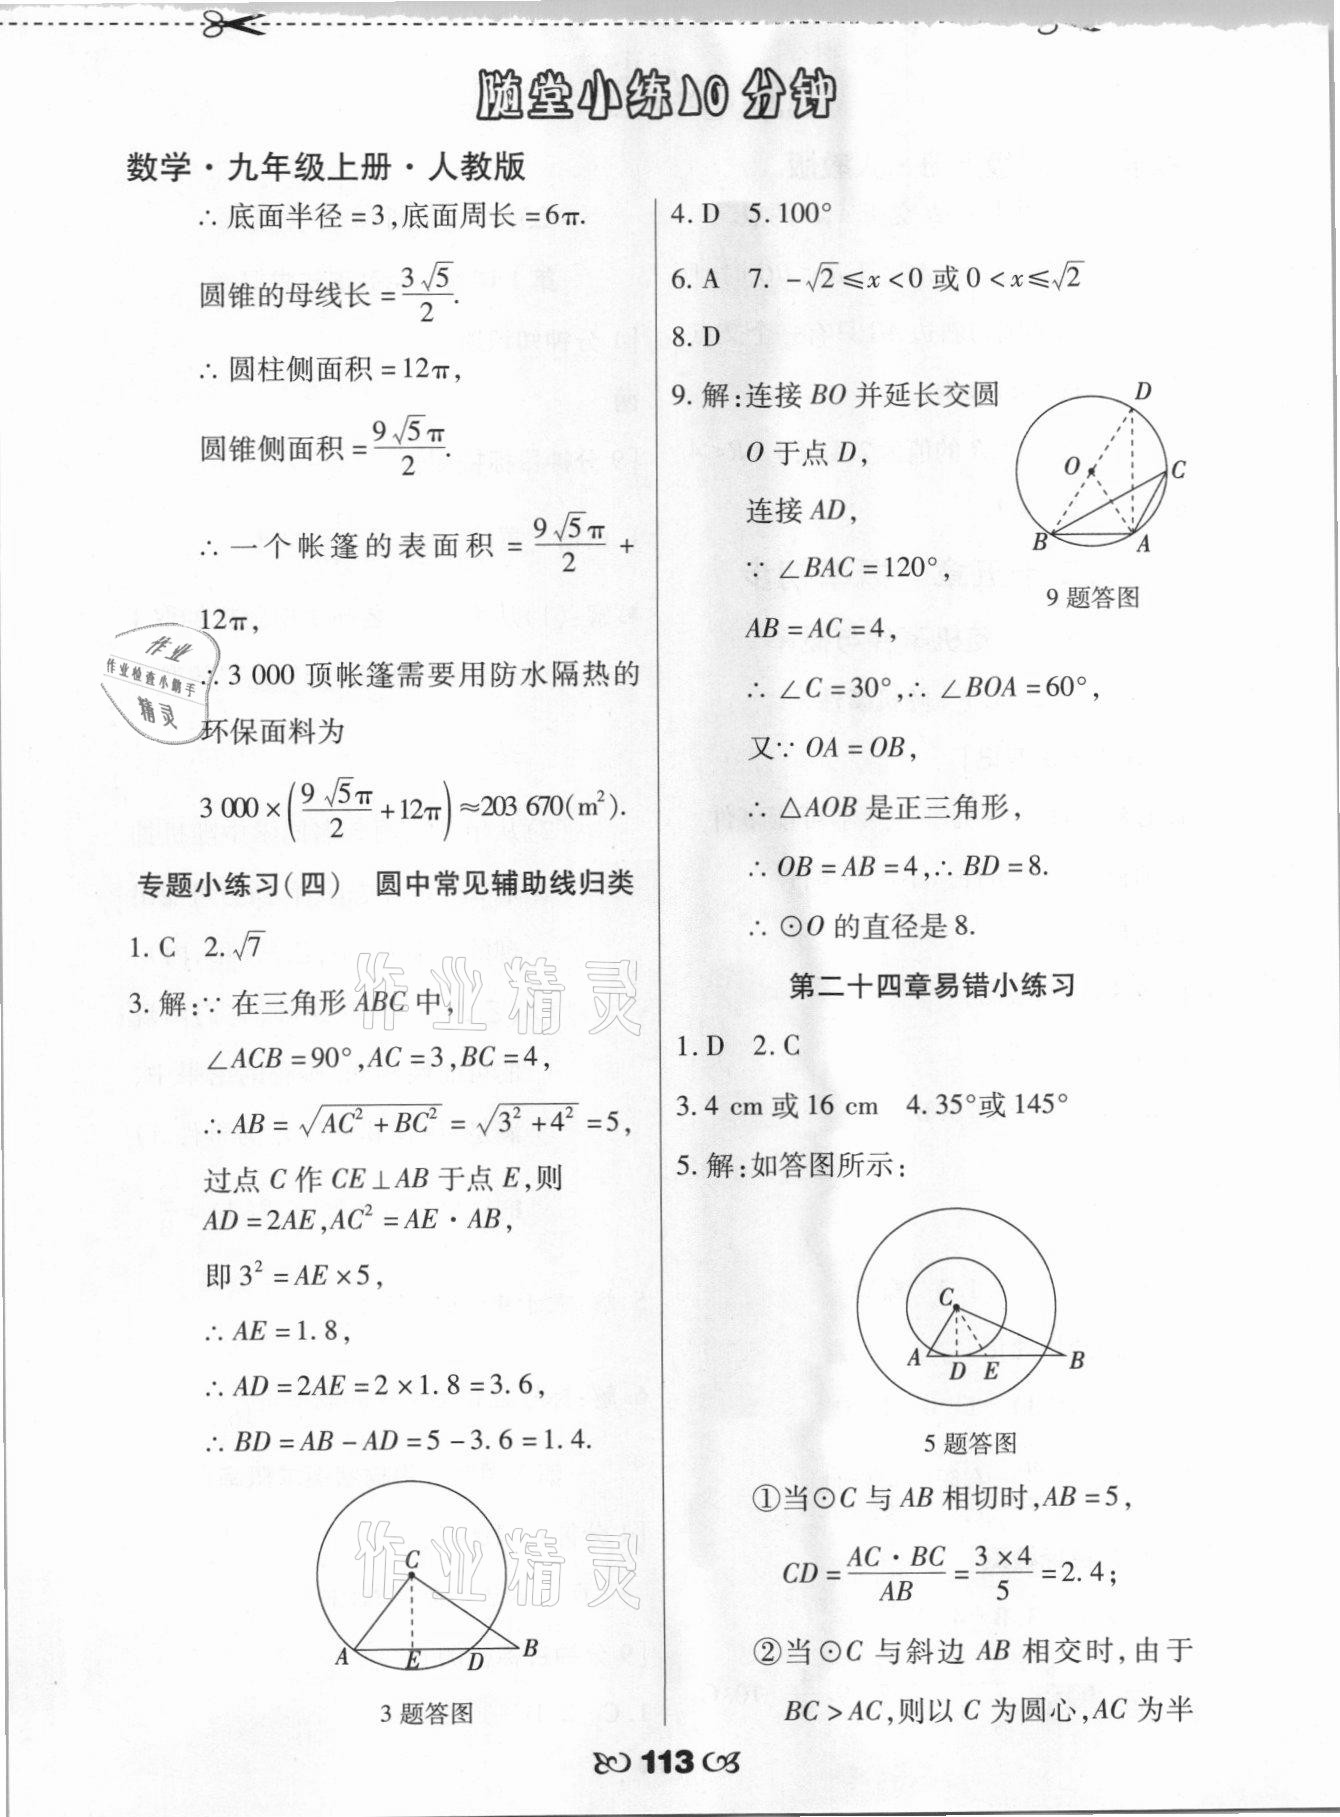 随堂小练10分钟
数学·九年级上册·人教版
∴底面半径=3,底面周长=6π.
圆锥的母线长=3√5/2.
∴圆柱侧面积=12π,
圆锥侧面积=9√5π/2.
∴一个帐篷的表面积=9√5π/2+
12π,
∴3 000 顶帐篷需要用防水隔热的
环保面料为
3 000×(9√5π/2+12π)≈203 670(m²).
专题小练习(四) 圆中常见辅助线归类
1. C 2. √7
3. 解:∵在三角形 ABC 中,
∠ACB=90°,AC=3,BC=4,
∴AB=√(AC²+BC²)=√(3²+4²)=5,
过点 C 作 CE⊥AB 于点 E,则
AD=2AE,AC²=AE·AB,
即 3²=AE×5,
∴AE=1.8,
∴AD=2AE=2×1.8=3.6,
∴BD=AB-AD=5-3.6=1.4.
C
A
E
D
B
3 题答图
4. D 5. 100°
6. A 7. -√2≤x<0 或 0<x≤√2
8. D
9. 解:连接 BO 并延长交圆
O 于点 D,
连接 AD,
∵∠BAC=120°,
AB=AC=4,
∴∠C=30°,∴∠BOA=60°,
又∵OA=OB,
∴△AOB 是正三角形,
∴OB=AB=4,∴BD=8.
∴⊙O 的直径是 8.
D
O
C
B
A
9 题答图
第二十四章易错小练习
1. D 2. C
3. 4 cm 或 16 cm 4. 35°或 145°
5. 解:如答图所示:
C
A
D
E
B
5 题答图
①当⊙C 与 AB 相切时,AB=5,
CD=AC·BC/AB=3×4/5=2.4;
②当⊙C 与斜边 AB 相交时,由于
BC>AC,则以 C 为圆心,AC 为半
113
作业
作业检查小助手
精灵
作业精灵
作业精灵